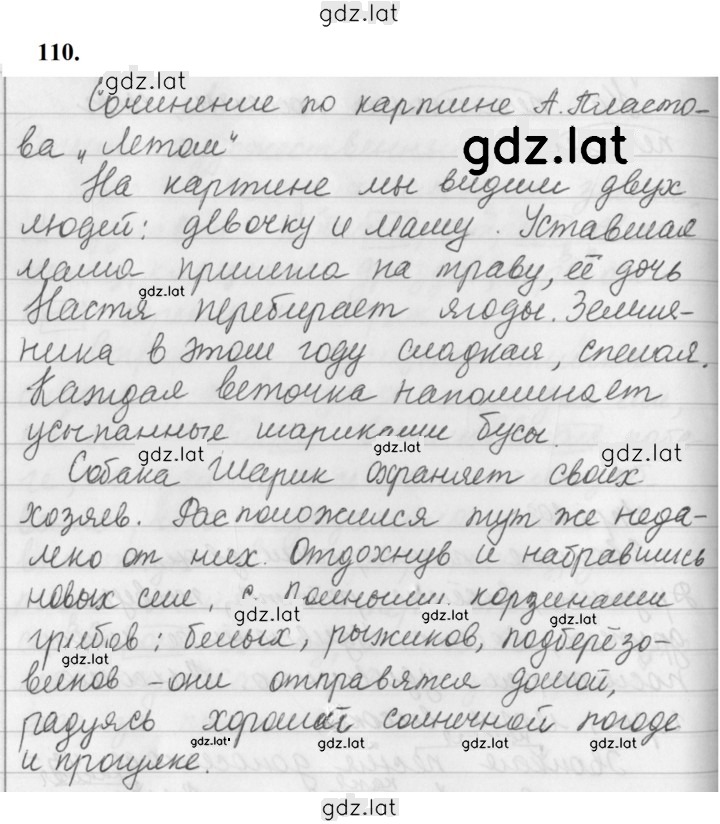 gdz.lat
110.
gdz.lat
Сочинение по картине А. Пласто-
ва „Летом“
gdz.lat
На картине мы видим двух
людей: девочку и маму. Уставшая
мама прилегла на траву, её дочь
gdz.lat
Настя перебирает ягоды. Земля-
ника в этом году сладкая, спелая.
Каждая веточка напоминает
усыпанные шариками бусы.
gdz.lat gdz.lat gdz.lat
Собака Шарик охраняет своих
хозяев. Расположился тут же неда-
леко от них. Отдохнув и набравшись
новых сил, с полными корзинами
gdz.lat gdz.lat gdz.lat
грибов: белых, рыжиков, подберёзо-
gdz.lat
виков - они отправятся домой,
радуясь хорошей солнечной погоде
gdz.lat gdz.lat gdz.lat
и прогулке.
gdz.lat